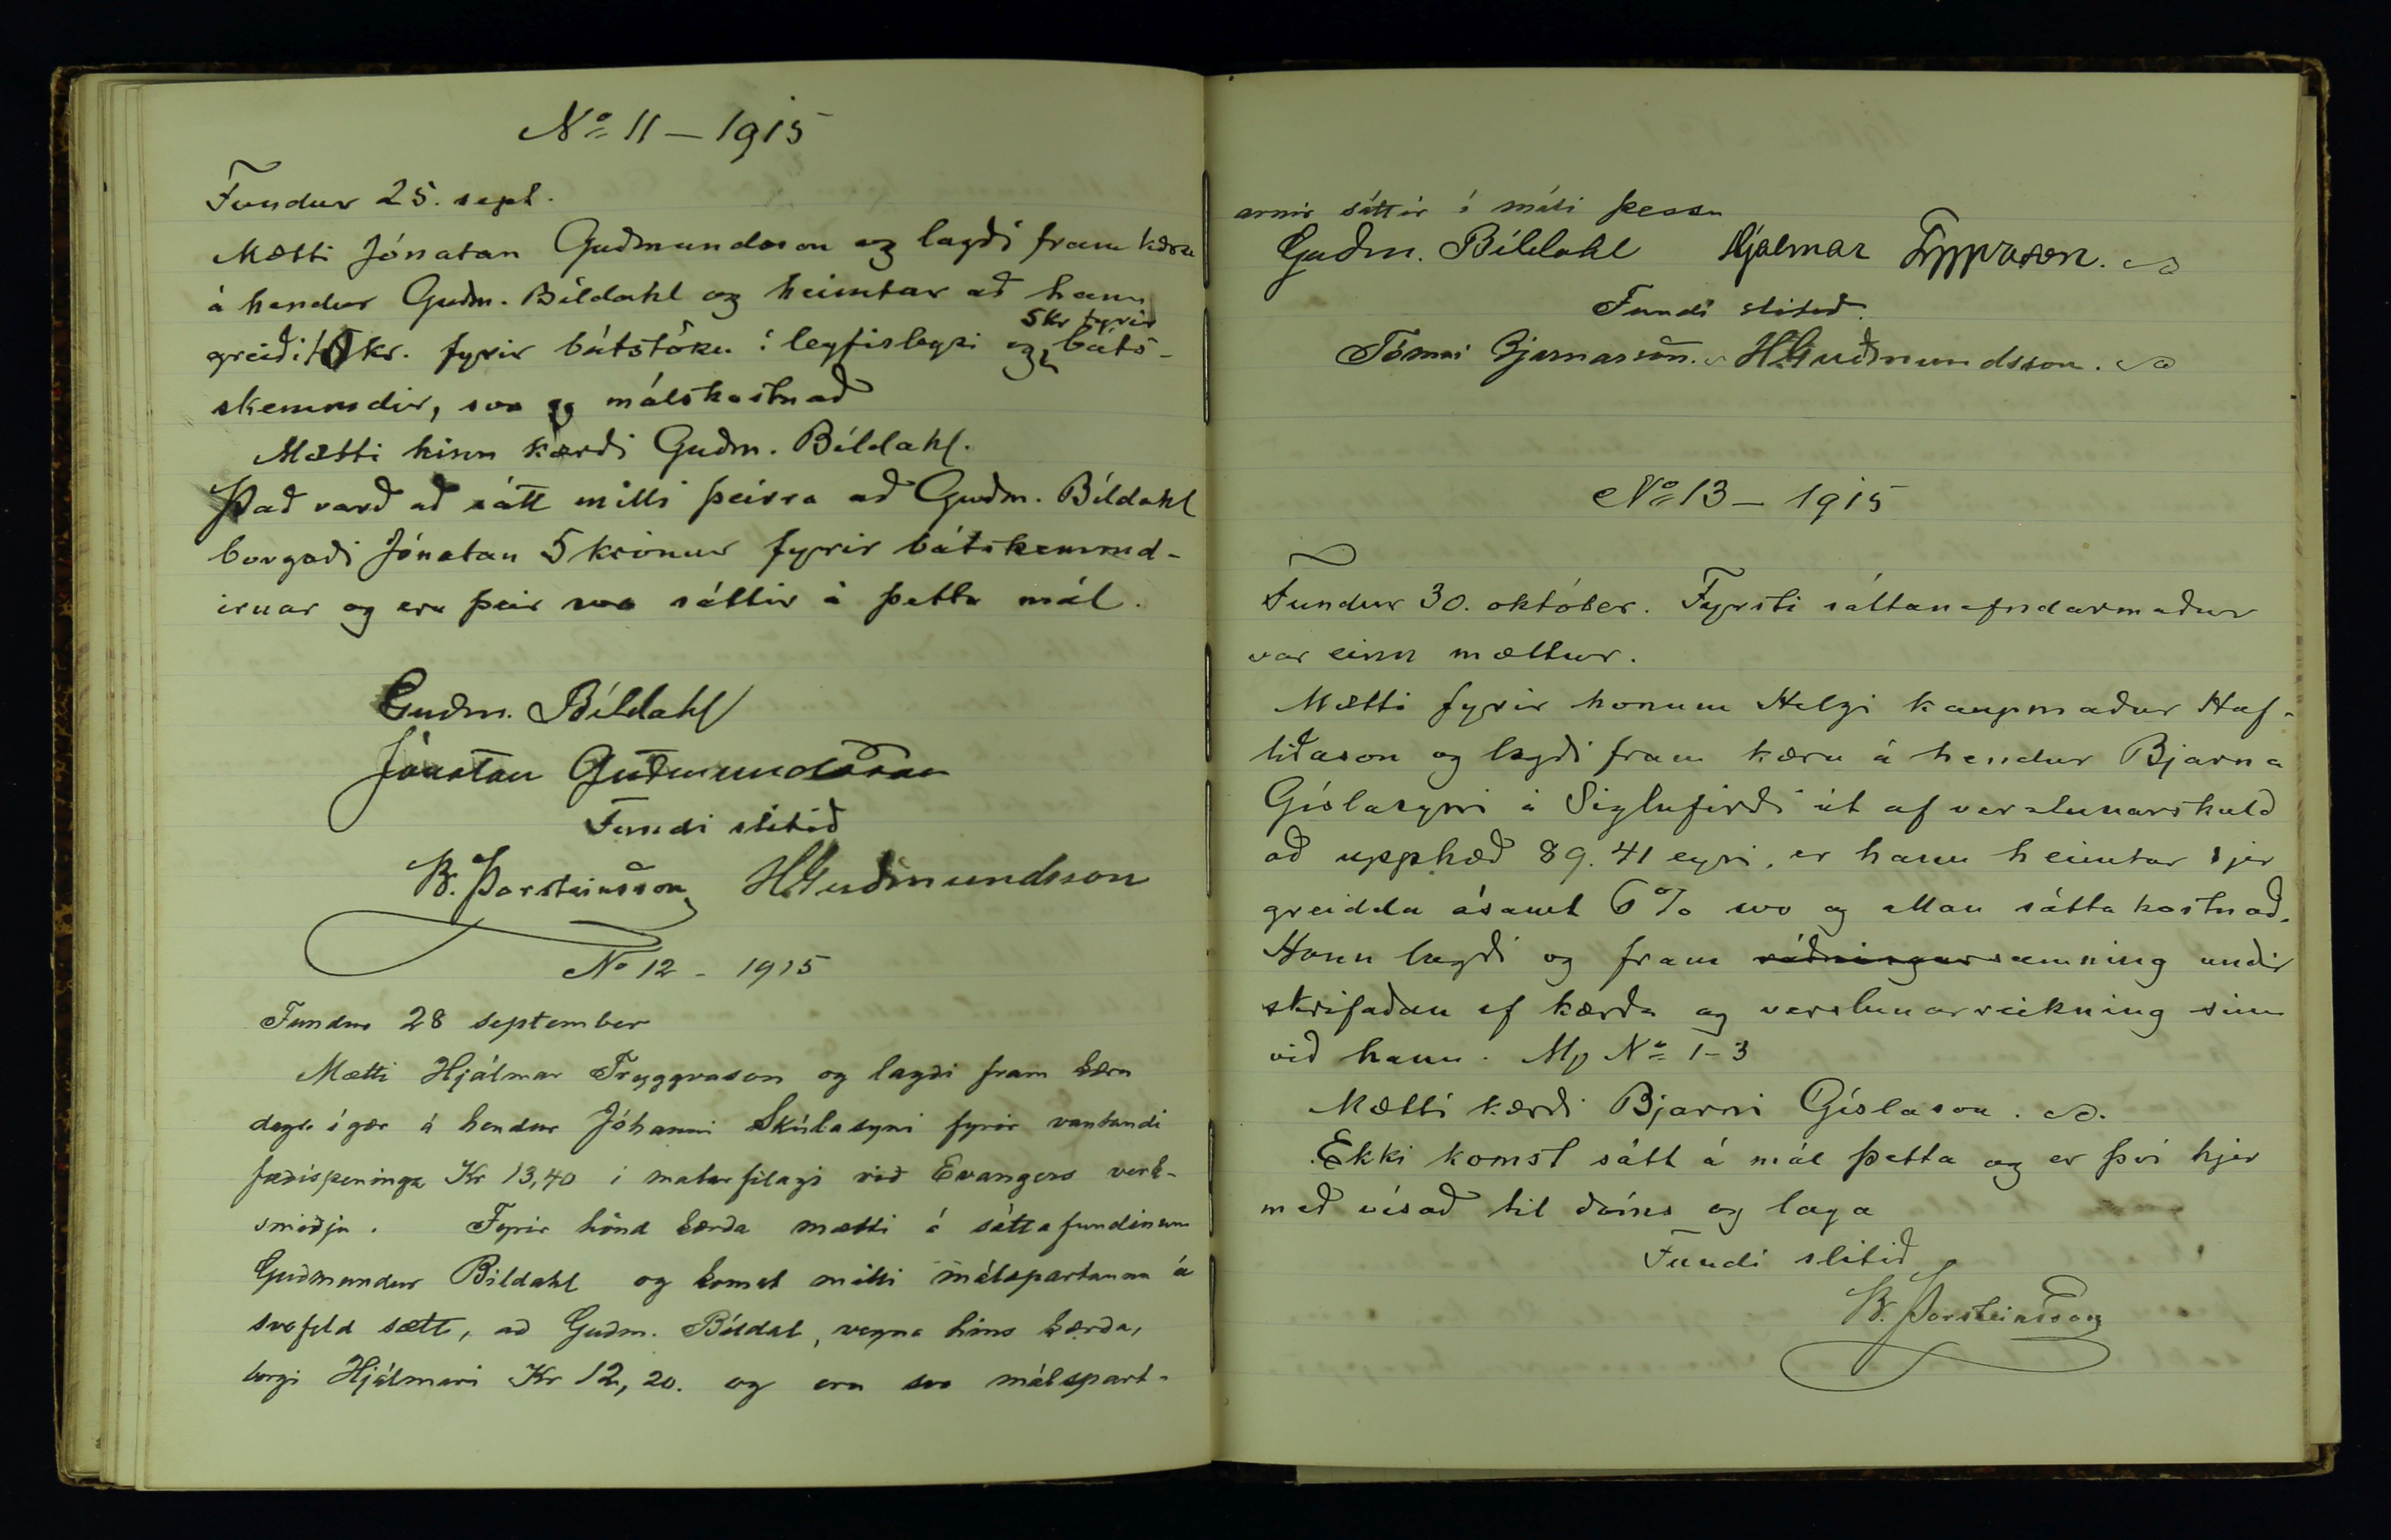 No 11 – 1915
Fundur 25. sept.
Mætti Jónatan Guðmundsson og lagði fram kæru
á hendur Guðm. Bíldahl og heimtar að hann
5 kr fyrir
greiði kr. fyrir bátstöku í leyfisleysi og báts-
skemmdir, svo og málskostnað
Mætti hinn kærði Guðm. Bíldahl.
Það varð að sátt milli þeirra að Guðm. Bíldahl
borgaði Jónatan 5 krónur fyrir bátskemmd-
irnar og eru þeir svo sáttir á þetta mál.
Guðm. Bíldahl
Jónatan Guðmundsson
Fundi slitið
B. Þorsteinsson HGuðmundsson
No 12 - 1915
Fundur 28 september
Mætti Hjálmar Tryggvason og lagði fram kæru
dags. í gær á hendur Jóhanni Skúlasyni fyrir vantandi
fæðispeninga Kr 13,40 í matarfélagi við Evangers verk-
smiðju. Fyrir hönd kærða mætti á sáttafundinum
Guðmundur Bíldahl og komst milli málspartanna á
svofeld sætt, að Guðm. Bíldal, vegna hins kærða,
borgi Hjálmari Kr 12,20. og eru svo málspart-
arnir sáttir í máli þessu
Guðm. Bíldahl Hjalmar Tryggvason.
Fundi slitið.
Tómas Bjarnason. HGuðmundsson.
No 13 – 1915
Fundur 30. október. Fyrsti sáttanefndarmaður
var einn mættur.
Mætti fyrir honum Helgi kaupmaður Haf-
liðason og lagði fram kæru á hendur Bjarna
Gíslasyni á Siglufirði út af verslunarskuld
að upphæð 89.41 eyri, er hann heimtar sjer
greidda ásamt 6% svo og allan sáttakostnað.
Hann lagði og fram ráðningarsamning undir
skrifaðan af kærða og verslunarreikning sinn
við hann. Mp No 1-3
Mætti kærði Bjarni Gíslason.
Ekki komst sátt á mál þetta og er því hjer
með vísað til dóms og laga
Fundi slitið
B. Þorsteinsson